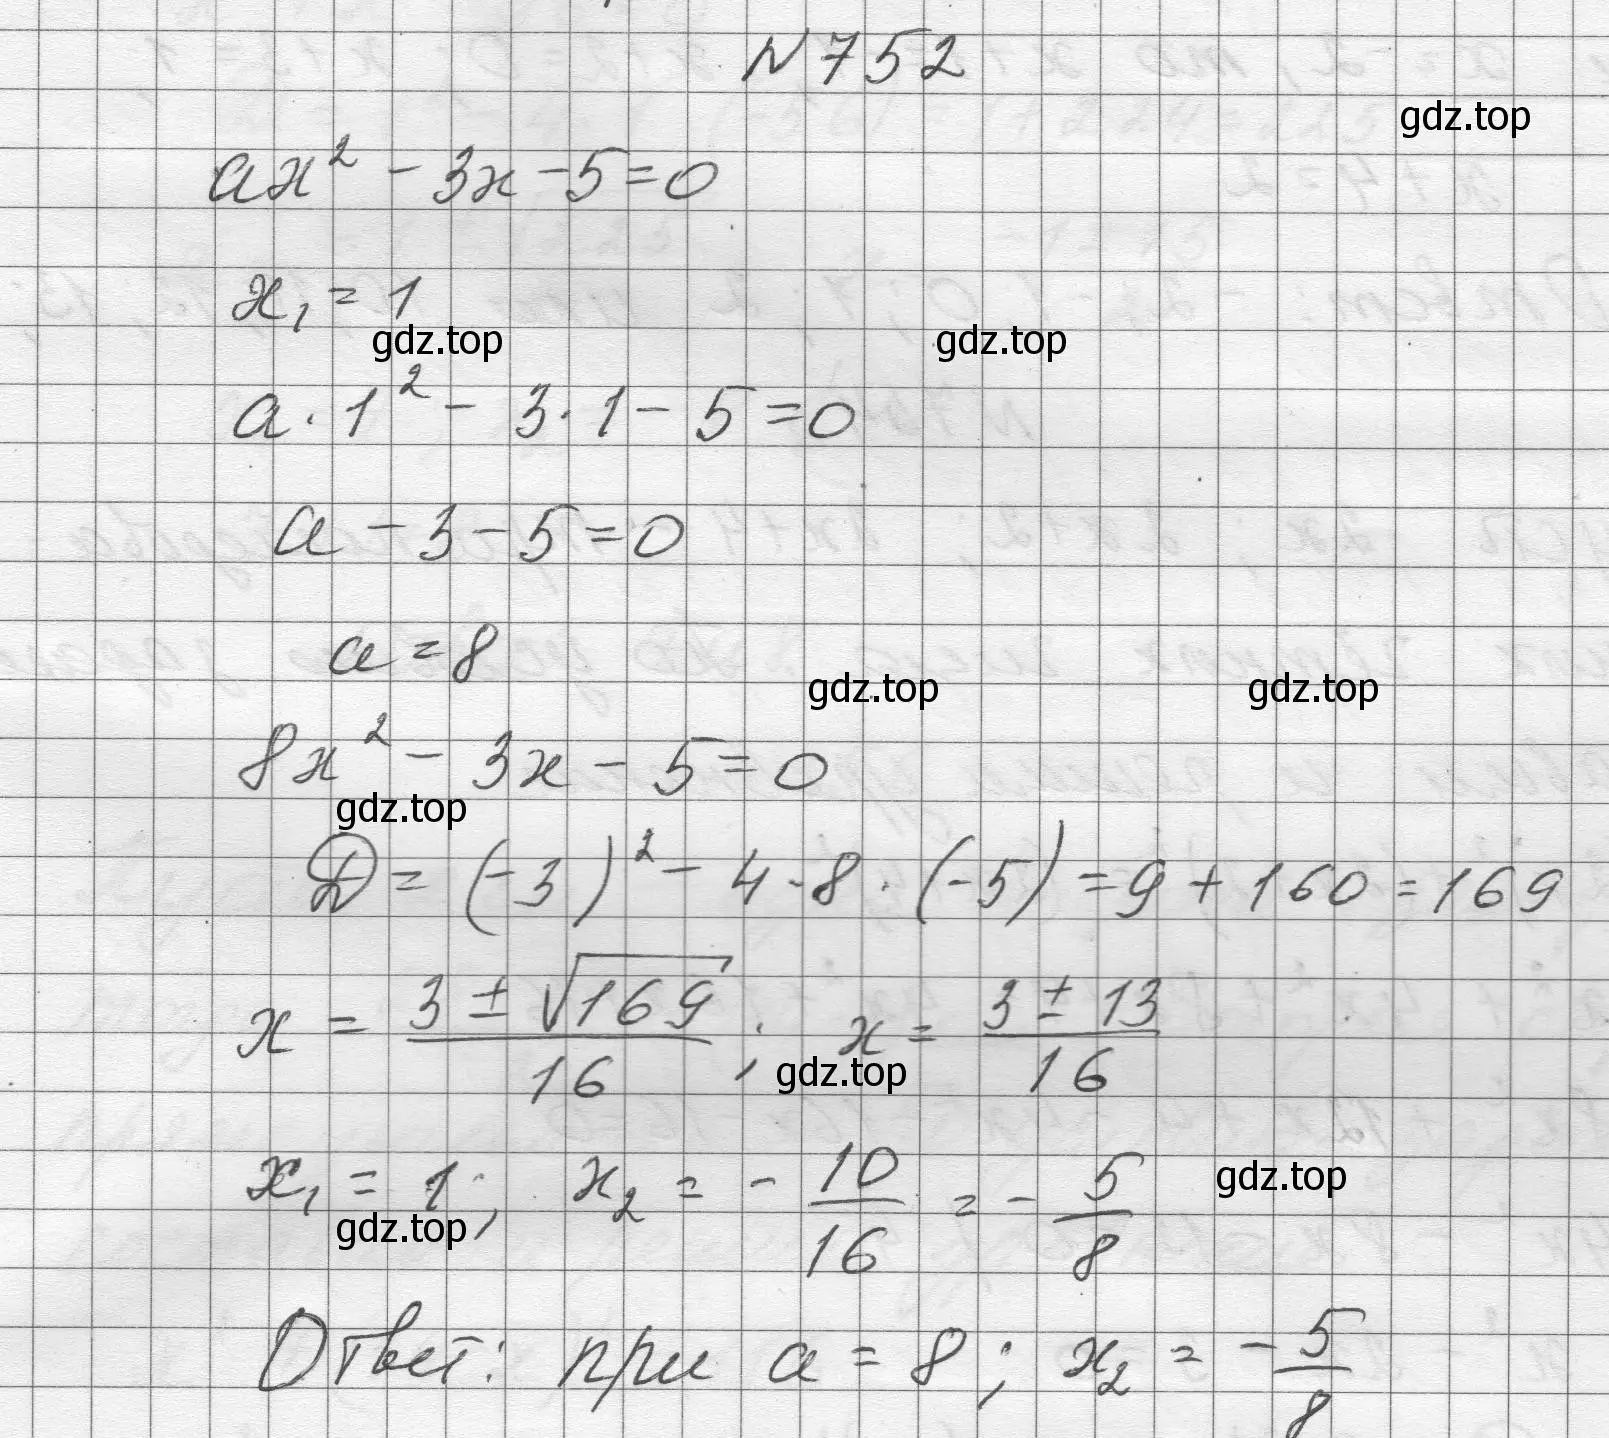 N752
gdz.top
ax² - 3x - 5 = 0
x₁ = 1
gdz.top gdz.top
a · 1² - 3 · 1 - 5 = 0
a - 3 - 5 = 0
a = 8
gdz.top gdz.top
8x² - 3x - 5 = 0
gdz.top
D = (-3)² - 4 · 8 · (-5) = 9 + 160 = 169
x = (3 ± √169)/16 ; x = (3 ± 13)/16
gdz.top
x₁ = 1; x₂ = - 10/16 = - 5/8
gdz.top gdz.top
Ответ: при a = 8; x₂ = - 5/8